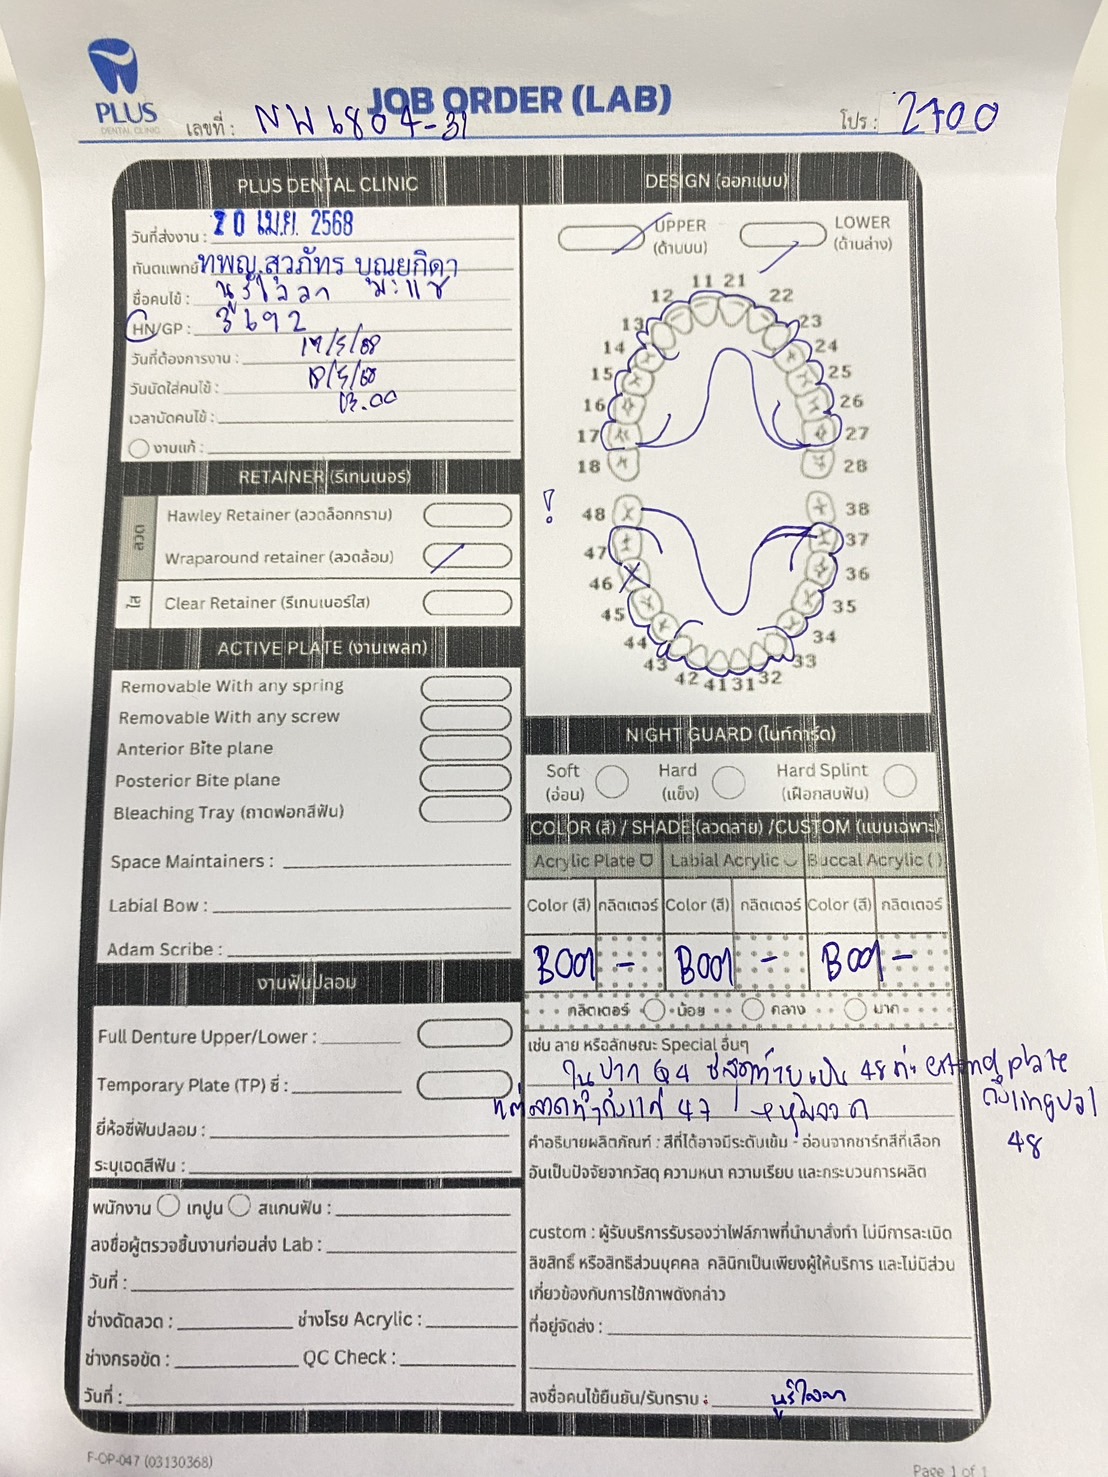 PLUS
DENTAL CLINIC
JOB ORDER (LAB)
เลขที่ : NW6804-31
โปร : 2700
PLUS DENTAL CLINIC
วันที่ส่งงาน : 20 เม.ย. 2568
ทันตแพทย์ ทพญ.สุวภัทร บุณยกิดา
ชื่อคนไข้ :
HN/GP : 3692
วันที่ต้องการงาน : 17/5/68
วันนัดใส่คนไข้ : 18/5/68
เวลานัดคนไข้ : 13.00
งานแก้ :
RETAINER (รีเทนเนอร์)
ลวด
Hawley Retainer (ลวดล็อกกราม)
Wraparound retainer (ลวดล้อม)
ใส
Clear Retainer (รีเทนเนอร์ใส)
ACTIVE PLATE (งานเพลท)
Removable With any spring
Removable With any screw
Anterior Bite plane
Posterior Bite plane
Bleaching Tray (ถาดฟอกสีฟัน)
Space Maintainers :
Labial Bow :
Adam Scribe :
งานฟันปลอม
Full Denture Upper/Lower :
Temporary Plate (TP) ซี่ :
ยี่ห้อซี่ฟันปลอม :
ระบุเฉดสีฟัน :
พนักงาน เทปูน สแกนฟัน :
ลงชื่อผู้ตรวจชิ้นงานก่อนส่ง Lab :
วันที่ :
ช่างดัดลวด : ช่างโรย Acrylic :
ช่างกรอขัด : QC Check :
วันที่ :
DESIGN (ออกแบบ)
UPPER
(ด้านบน)
LOWER
(ด้านล่าง)
11 21
12 22
13 23
14 24
15 25
16 26
17 27
18 28
!
48 38
47 37
46 36
45 35
44 34
43 33
42 41 31 32
NIGHT GUARD (ไนท์การ์ด)
Soft
(อ่อน)
Hard
(แข็ง)
Hard Splint
(เฝือกสบฟัน)
COLOR (สี) / SHADE (ลวดลาย) /CUSTOM (แบบเฉพาะ)
Acrylic Plate Labial Acrylic Buccal Acrylic ( )
Color (สี) กลิตเตอร์ Color (สี) กลิตเตอร์ Color (สี) กลิตเตอร์
B001 - B001 - B001 -
กลิตเตอร์ น้อย กลาง มาก
เช่น ลาย หรือลักษณะ Special อื่นๆ
ในปาก Q4 ซี่สุดท้ายเป็น 48 extend plate
ถึง lingual
48
แต่ลวดทำถึงแค่ 47 !
คำอธิบายผลิตภัณฑ์ : สีที่ได้อาจมีระดับเข้ม - อ่อนจากชาร์ทสีที่เลือก
อันเป็นปัจจัยจากวัสดุ ความหนา ความเรียบ และกระบวนการผลิต
custom : ผู้รับบริการรับรองว่าไฟล์ภาพที่นำมาสั่งทำ ไม่มีการละเมิด
ลิขสิทธิ์ หรือสิทธิส่วนบุคคล คลินิกเป็นเพียงผู้ให้บริการ และไม่มีส่วน
เกี่ยวข้องกับการใช้ภาพดังกล่าว
ที่อยู่จัดส่ง :
ลงชื่อคนไข้ยืนยัน/รับทราบ :
F-OP-047 (03130368)
Page 1 of 1